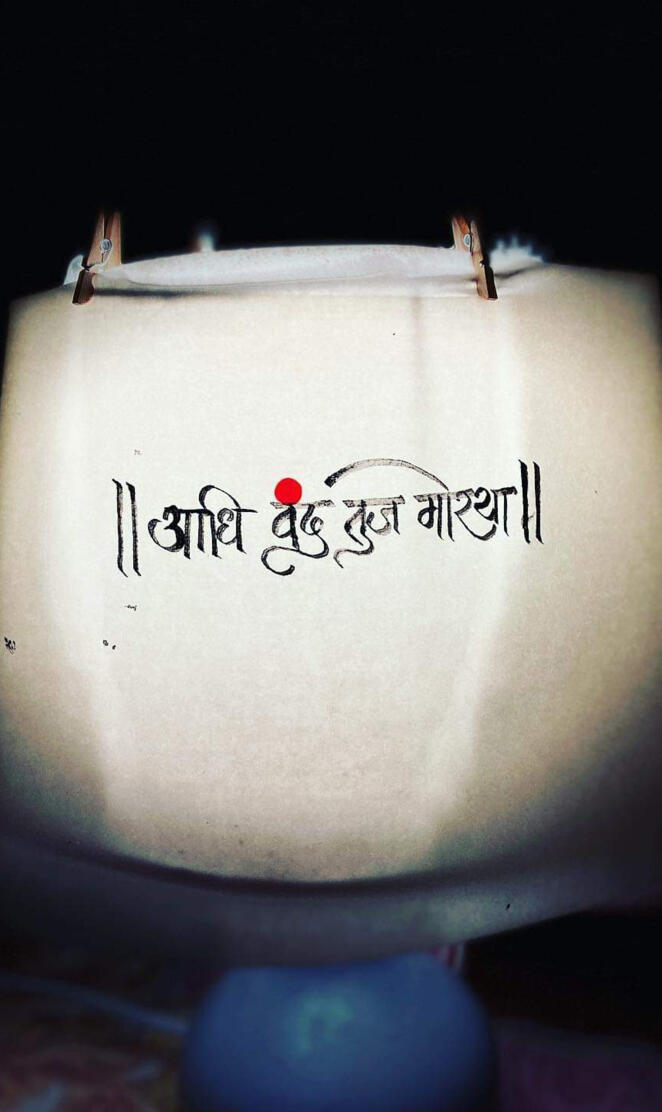 ॥ आधि वंदु तुज मोरया ॥